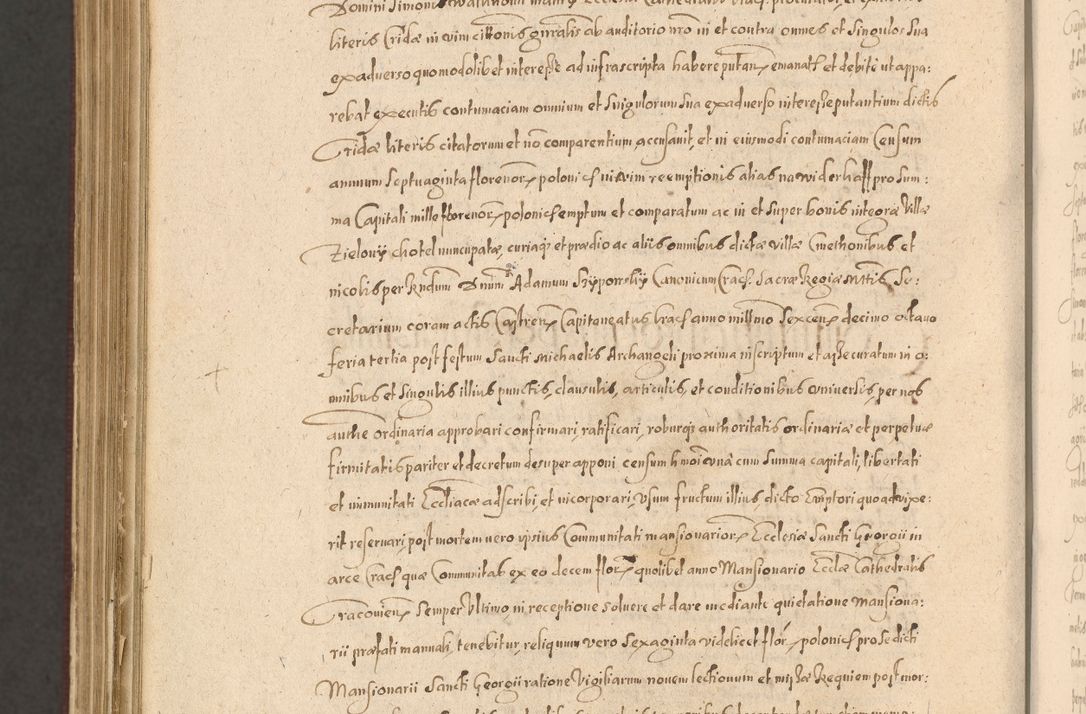 Domini Simonis
literis Cridæ in vim citționis gnralis ab auditorio nro in et contra omnes et Singulos Sua
ex adverso quomodolibet interesse ad infrascripta habere putan, emanatis et debite ut appa:
rebat executis contumaciam omnium et Singulorum sua ex adverso interesse putantium dictis
Cridæ literis citatorum et nõ comparentium accusavit, et in eiusmodi contumaciam Censum
annuum Septuaginta florenor polonics in vim reemptionis alias na widerkaff pro Sum:
ma Capitali mille florenor polonics emptum et comparatum ac in et super bonis integræ Villæ
Zielony chotel nuncupatæ, curiaq et prædio ac aliis omnibus dictæ villæ Cmethonibus et
incolis per Rndum Dnum Adamum Szyporsky Canonicum Crac: Sacræ Regiæ Mttis Se:
cretarium coram actis Castren Capitaneatus Crac anno millmo Sexcen decimo octavo
feria tertia post festum Sancti Michaelis Archangeli proxima inscriptum et assecuratum in o:
mnibus et Singulis illius punctis, clausulis, articulis, et conditionibus Universis, per nos
authe ordinaria approbari confirmari, ratificari, roburq authoritatis ordinariæ et perpetuæ
firmitatis pariter et decretum desuper apponi censum hmoi una cum Summa capitali, libertati
et immunitati Eccliacæ adscribi, et incorporari, Usum fructum illius, dicto Emptori quoad vixe:
rit reservari, post mortem vero ipsius Communitati mansionarior Ecclesiæ Sancti Georgii in
arce Crac quæ Communitas ex eo decem flor quolibet anno Mansionario Ecclæ Cathedralis
Cracovien Semper Ultimo, in receptione solvere et dare mediante quietatione Mansiona:
rii præfati manuali, tenebitur, reliquum vero Sexaginta videlicet flor polonics pro Se dicti
Mansionarii Sancti Georgii ratione Vigiliarum novem lectionum et missæ Requiem post mor: